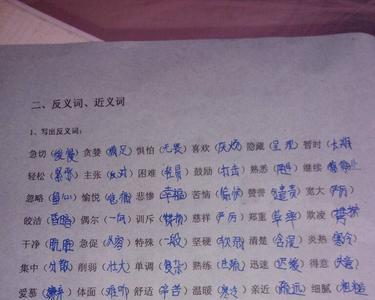 二、反义词、近义词
1、写出反义词：
急切（缓慢）贪婪（满足）惧怕（无畏）喜欢（厌烦）隐藏（呈现）暂时（长期）
轻松（紧张）主张（反对）困难（容易）鼓励（打击）熟悉（陌生）继续（
忽略（留心）愉悦（悲痛）悲惨（幸福）苦恼（愉快）赞誉（谴责）宽大（严厉）
皎洁（昏暗）偶尔（一向）训斥（赞扬）慈祥（严厉）郑重（草率）欺凌（
干净（肮脏）急促（从容）特殊（一般）坚硬（软弱）清楚（含混）炎热（寒冷）
集中（分散）削弱（壮大）单调（复杂）熟练（生疏）迅速（迟缓）得意（失意）
爱慕（嫌弃）体面（难听）舒适（辛苦）温暖（寒冷）亲近（疏远）细腻（粗糙